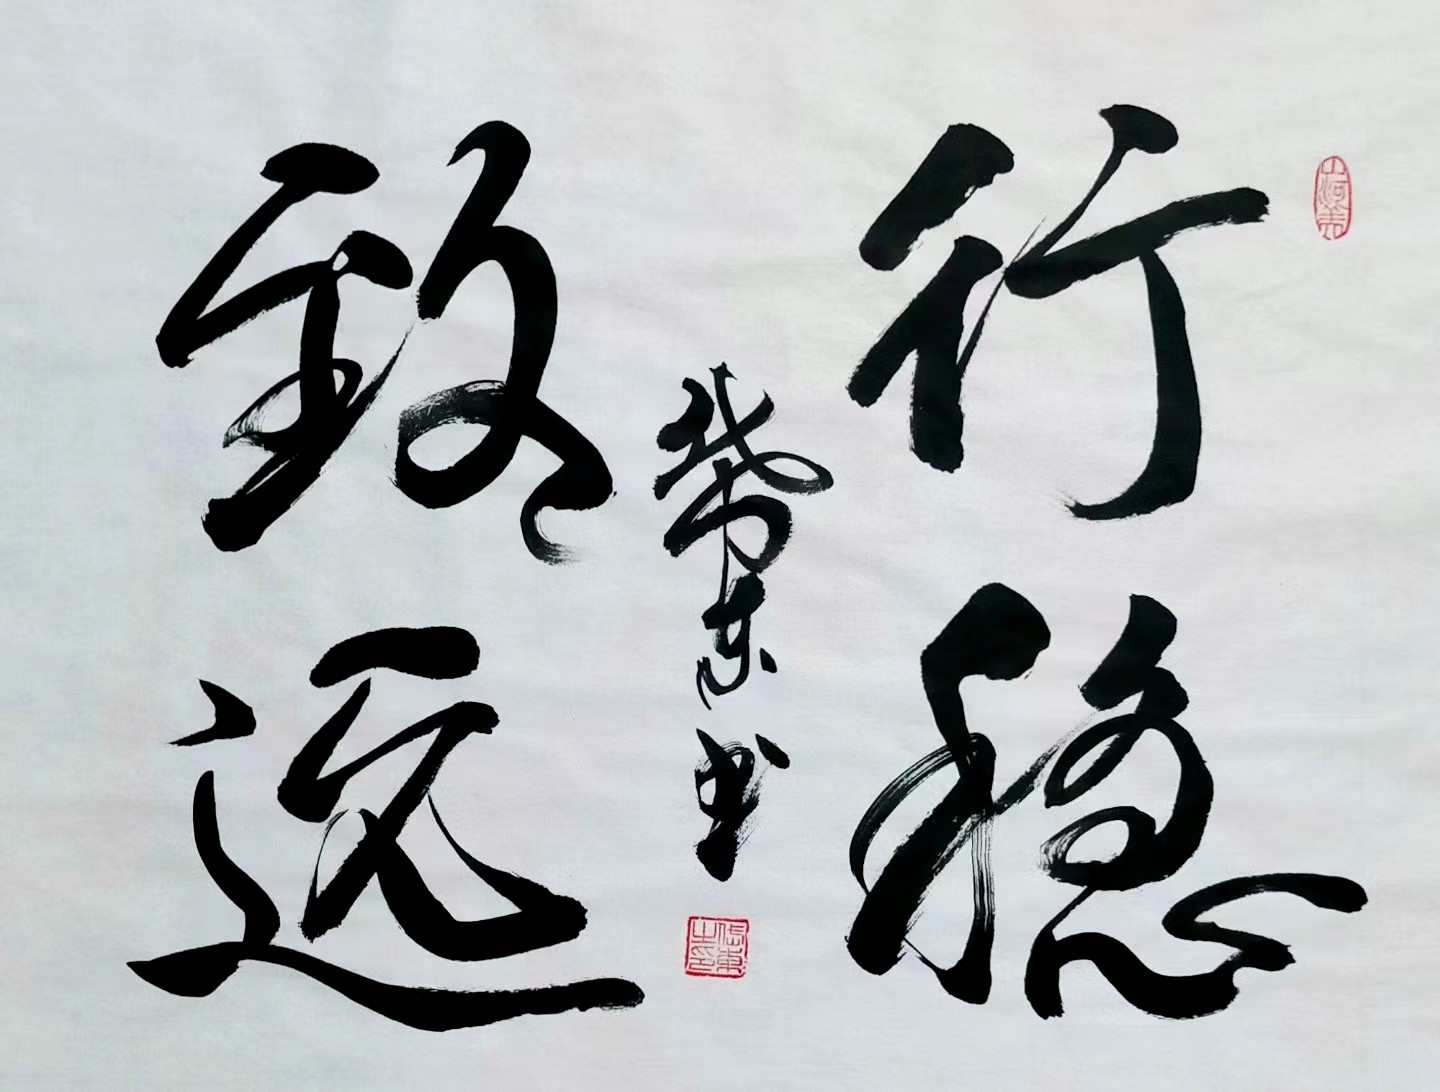 行稳
致远
东书